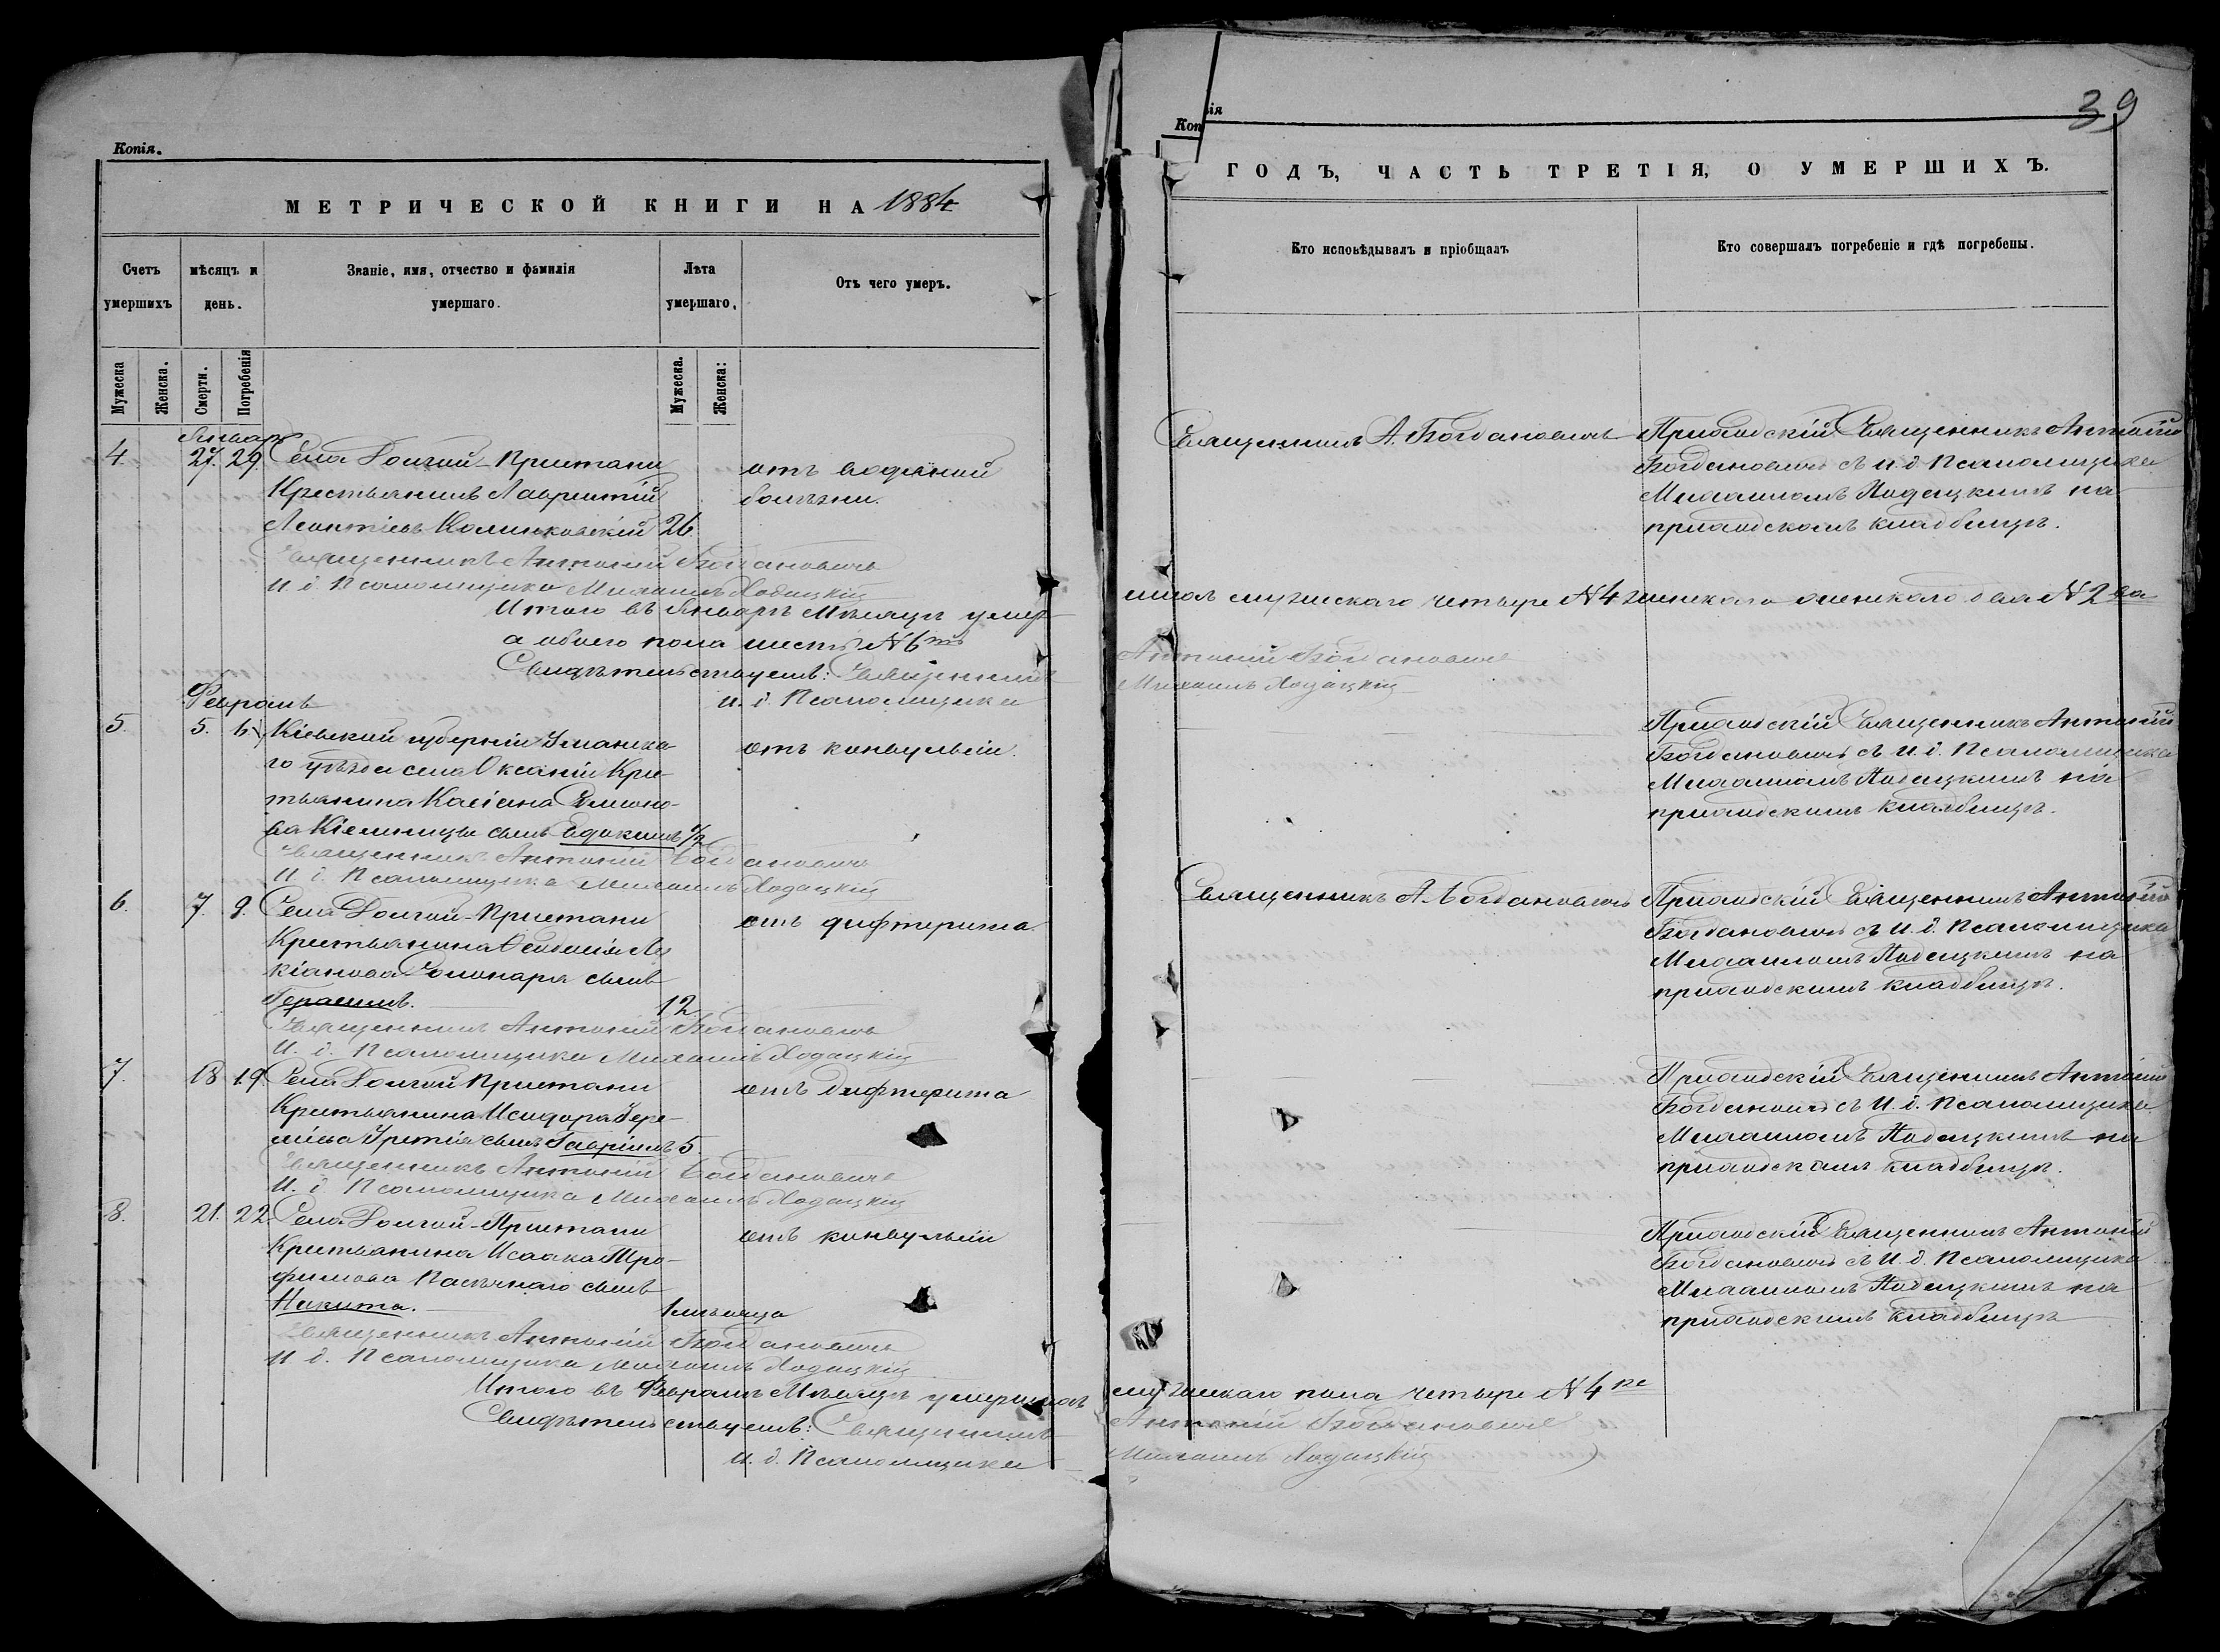 Копія.
МЕТРИЧЕСКОЙ КНИГИ НА 1884
Счетъ умершихъ
мѣсяцъ и день.
Званіе, имя, отчество и фамилія умершаго.
Лѣта умершаго.
Отъ чего умеръ.
Мужеска
Женска.
Смерти.
Погребенія
Мужеска.
Женска:
Январь
4. 27. 29. Села Долгой-Пристани отъ водяной
Крестьянинъ Лаврентій болѣзни.
Леонтіевъ 26
Священникъ Антоній Богдановичъ
И. д. Псаломщика Михаилъ Ходацкій
Итого въ Январѣ Мѣсяцѣ умер-
а обоего пола шесть №6ть
Свидѣтельствуемъ: Священникъ
и. д. Псаломщика
Февраль
5. 5. 6. Кіевской губерніи Уманска- отъ конвульсій.
го уѣзда села Оксаніи Кре-
стьянина Касіана
сынъ Евдокимъ 1/2
Священникъ Антоній Богдановичъ
И. д. Псаломщика Михаилъ Ходацкій
6. 7. 9. Села Долгой-Пристани отъ дифтерита.
Крестьянина Феодосія Лу-
кіанова Пономаря сынъ
Герасимъ. 12
Священникъ Антоній Богдановичъ
И. д. Псаломщика Михаилъ Ходацкій
7. 18 19. Села Долгой Пристани отъ дифтерита
Крестьянина Исидора Ере-
міева сынъ Гавріилъ 5.
Священникъ Антоній Богдановичъ
И. д. Псаломщика Михаилъ Ходацкій
8. 21. 22. Села Долгой-Пристани отъ конвульсій
Крестьянина Исаака Тро-
фимова Пасѣчнаго сынъ
Никита. 1 мѣсяца
Священникъ Антоній Богдановичъ
И. д. Псаломщика Михаилъ Ходацкій
Итого въ Февралѣ Мѣсяцѣ умершихъ
Свидѣтельствуемъ: Священникъ
И. д. Псаломщика
39
ія
Коп
ГОДЪ, ЧАСТЬ ТРЕТІЯ, О УМЕРШИХЪ.
Кто исповѣдывалъ и пріобщалъ
Кто совершалъ погребеніе и гдѣ погребены.
Священникъ А. Богдановичъ Приходскій Священникъ Антоній
Богдановичъ съ и. д. Псаломщика
Михаиломъ Ходацкимъ на
приходскомъ кладбищѣ.
шихъ мужескаго четыре №4 женскаго два №2ва
Антоній Богдановичъ
Михаилъ Ходацкій
Приходскій Священникъ Антоній
Богдановичъ съ И. д. Псаломщика
Михаиломъ Ходацкимъ на
приходскимъ кладбищѣ.
Священникъ А. Богдановичъ Приходскій Священникъ Антоній
Богдановичъ съ И. д. Псаломщика
Михаиломъ Ходацкимъ на
приходскимъ кладбищѣ.
Приходскій Священникъ Антоній
Богдановичъ съ И. д. Псаломщика
Михаиломъ Ходацкимъ на
приходскомъ кладбищѣ.
Приходскій Священникъ Антоній
Богдановичъ съ И. д. Псаломщика
Михаиломъ Ходацкимъ на
приходскимъ кладбищѣ
мужескаго пола четыре №4ре
Антоній Богдановичъ
Михаилъ Ходацкій